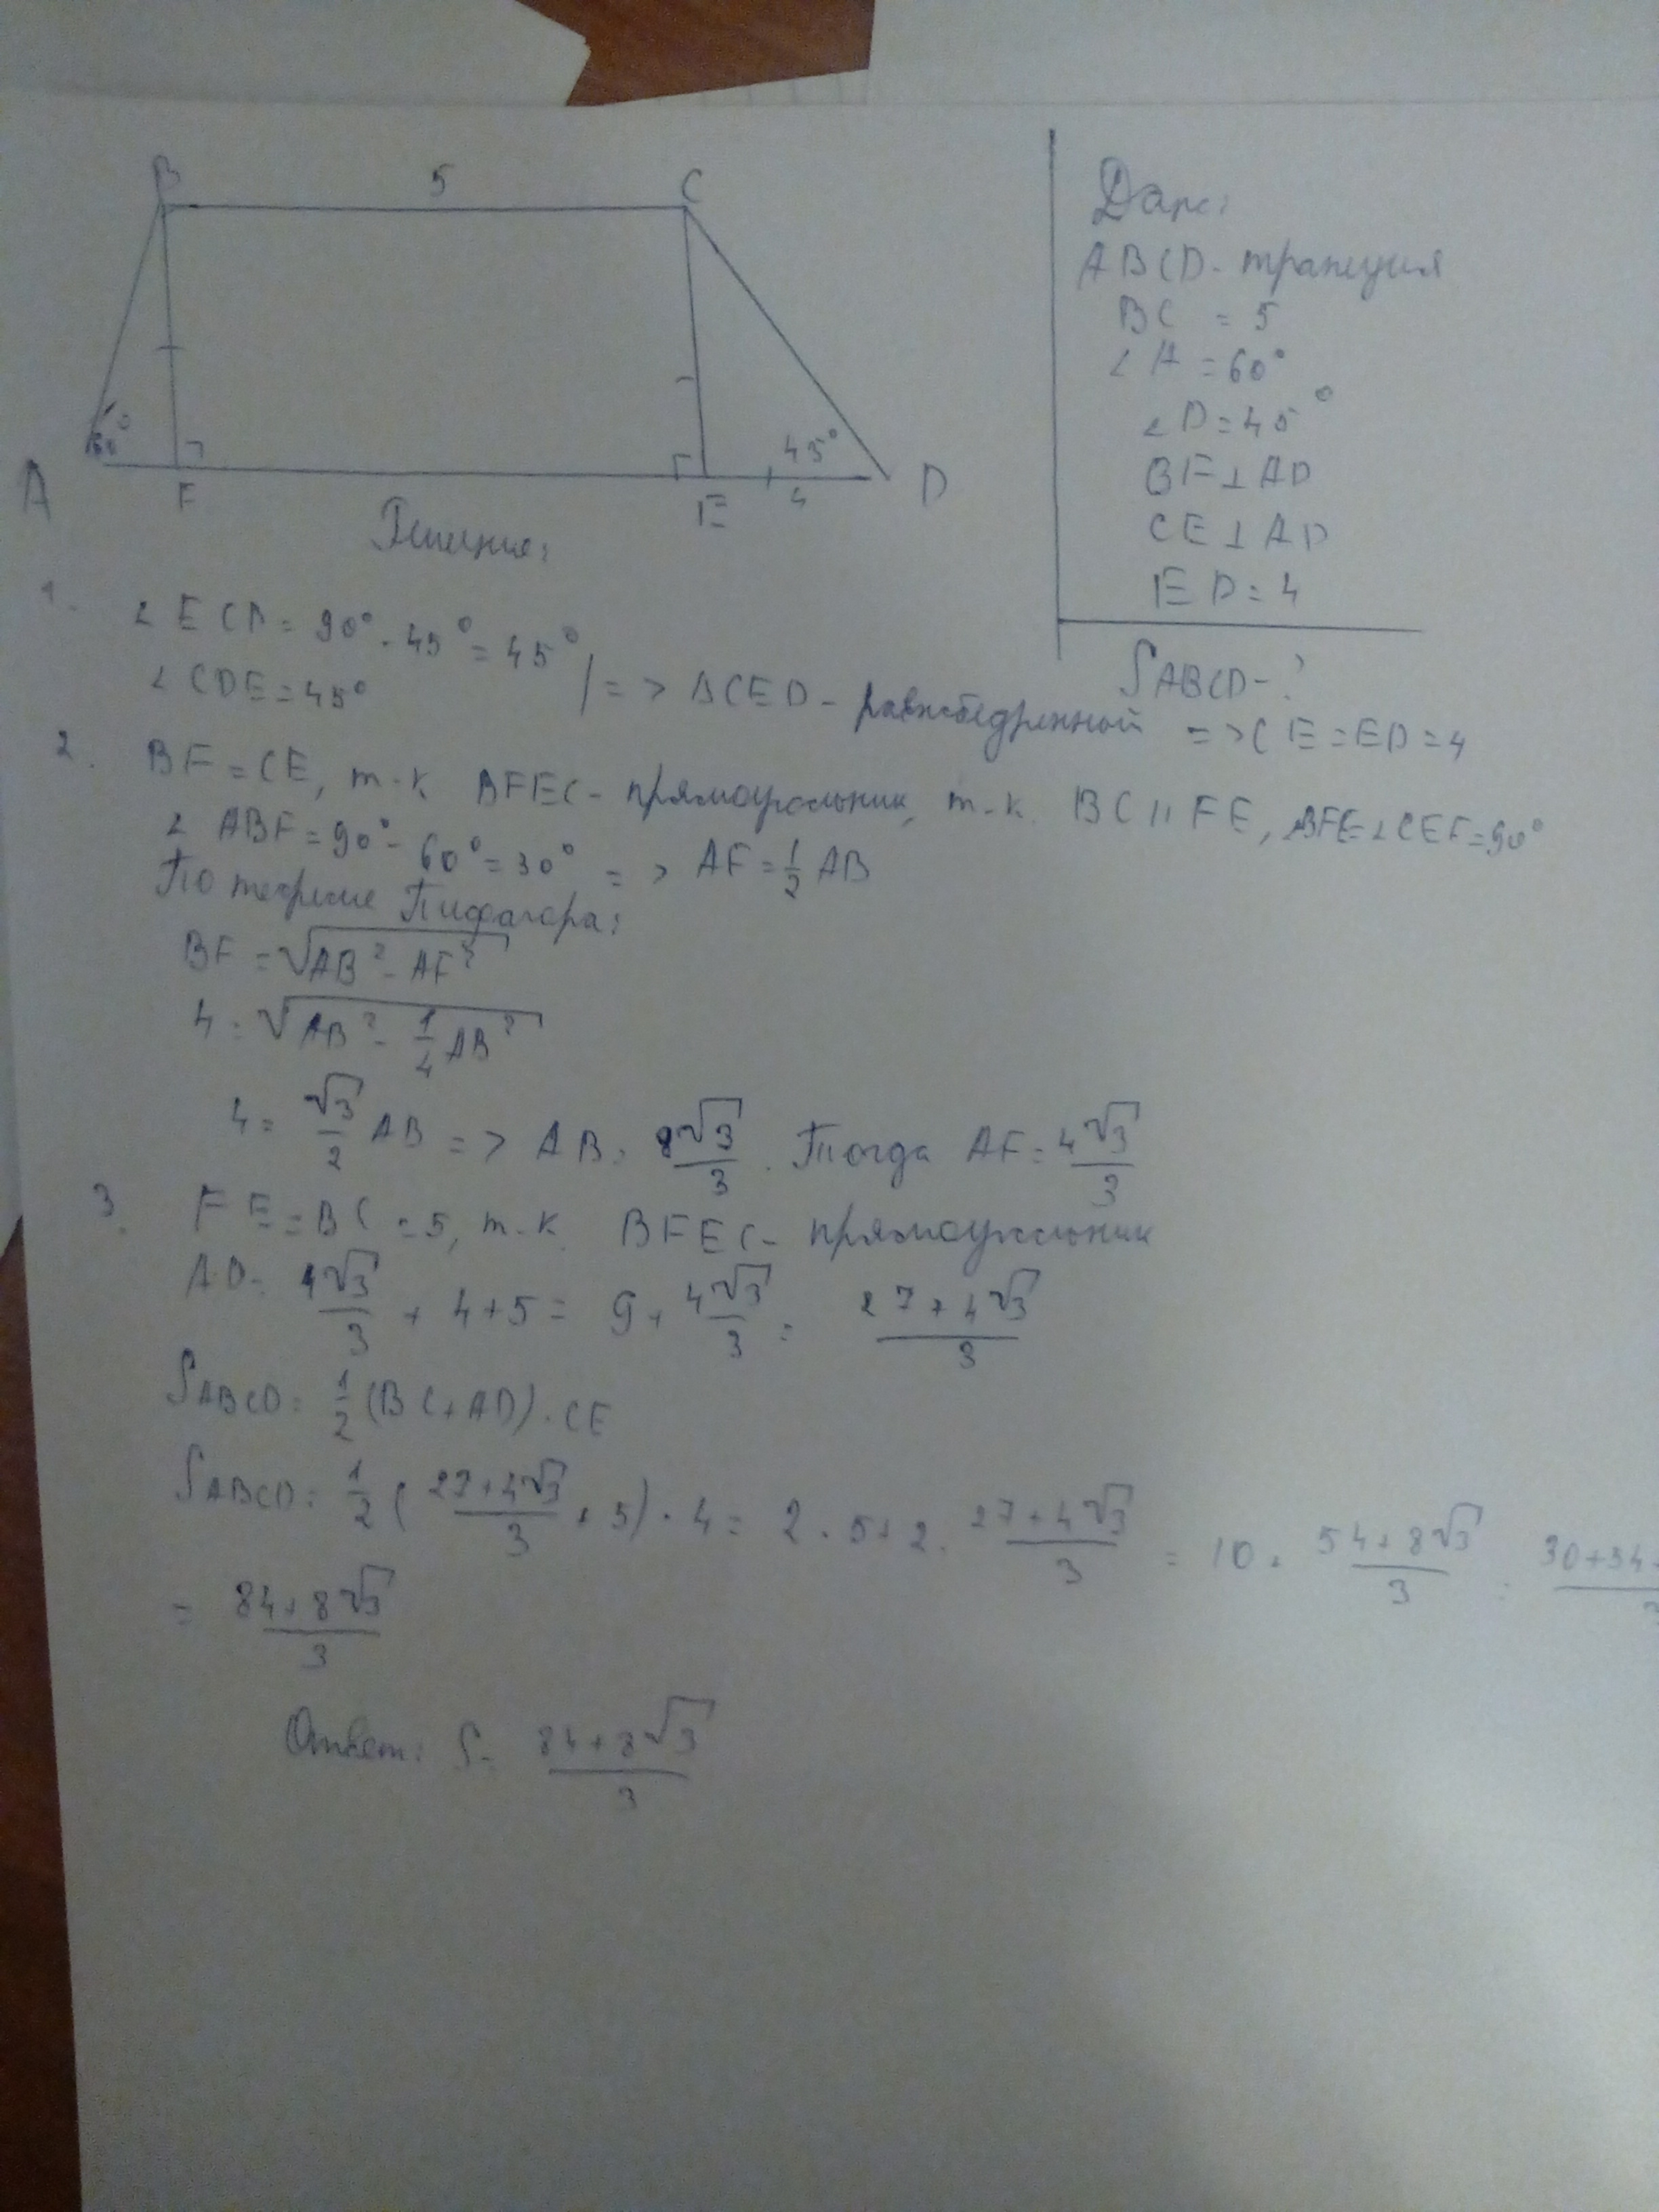 B 5 C
60°
45°
A F E 4 D
Дано:
ABCD - трапеция
BC = 5
∠A = 60°
∠D = 45°
BF ⊥ AD
CE ⊥ AD
ED = 4
SABCD - ?
Решение:
1. ∠ECD = 90° - 45° = 45°
∠CDE = 45° | => ΔCED - равнобедренной => CE = ED = 4
2. BF = CE, т-к. BFEC - прямоугольник, т-к. BC || FE, ∠BFE = ∠CEF = 90°
∠ABF = 90° - 60° = 30° => AF = 1/2 AB
По теореме Пифагора:
BF = √(AB² - AF²)
4 = √(AB² - 1/4 AB²)
4 = √3/2 AB => AB = 8√3/3. Тогда AF = 4√3/3
3. FE = BC = 5, т-к. BFEC - прямоугольник
AD = 4√3/3 + 4 + 5 = 9 + 4√3/3 = (27 + 4√3)/3
SABCD = 1/2 (BC + AD) · CE
SABCD = 1/2 ((27 + 4√3)/3 + 5) · 4 = 2 · 5 + 2 · (27 + 4√3)/3 = 10 + (54 + 8√3)/3 = 30 + 54 +
= (84 + 8√3)/3
Ответ: S = (84 + 8√3)/3